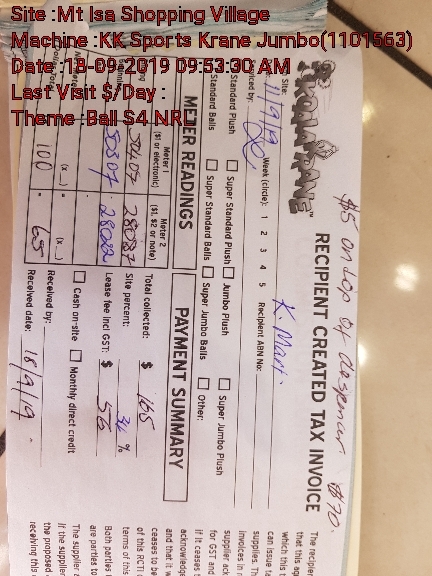 Site :Mt Isa Shopping Village
Machine :KK Sports Krane Jumbo(1101563)
Date :18-09-2019 09:53:30 AM
Last Visit $/Day :
Theme :Ball S4 NRL
$5 on top of despenser $70.
KOALA KRANE™
RECIPIENT CREATED TAX INVOICE
Site: K. Mart.
11/9/19 Week (circle): 1 2 3 4 5 Recipient ABN No:
Standard Plush Super Standard Plush Jumbo Plush Super Jumbo Plush
Standard Balls Super Standard Balls Super Jumbo Balls Other:
METER READINGS
PAYMENT SUMMARY
Meter 1
($1 or electronic)
Meter 2
($1, $2 or note)
50407 28087
50307 28022
(x )
(x )
100 65
Total collected: $ 165
Site percent: %
Lease fee incl GST: $ 56
Cash on-site Monthly direct credit
Received by:
Received date: 18/9/19
The recipie
that this ag
which this t
can issue ta
supplies. Th
invoices in r
supplier ack
for GST and
if it ceases t
acknowledge
and that it w
ceases to be
of this RCTI
terms of this
Both parties
are parties to
The supplier a
if the supplier
the proposed
receiving this